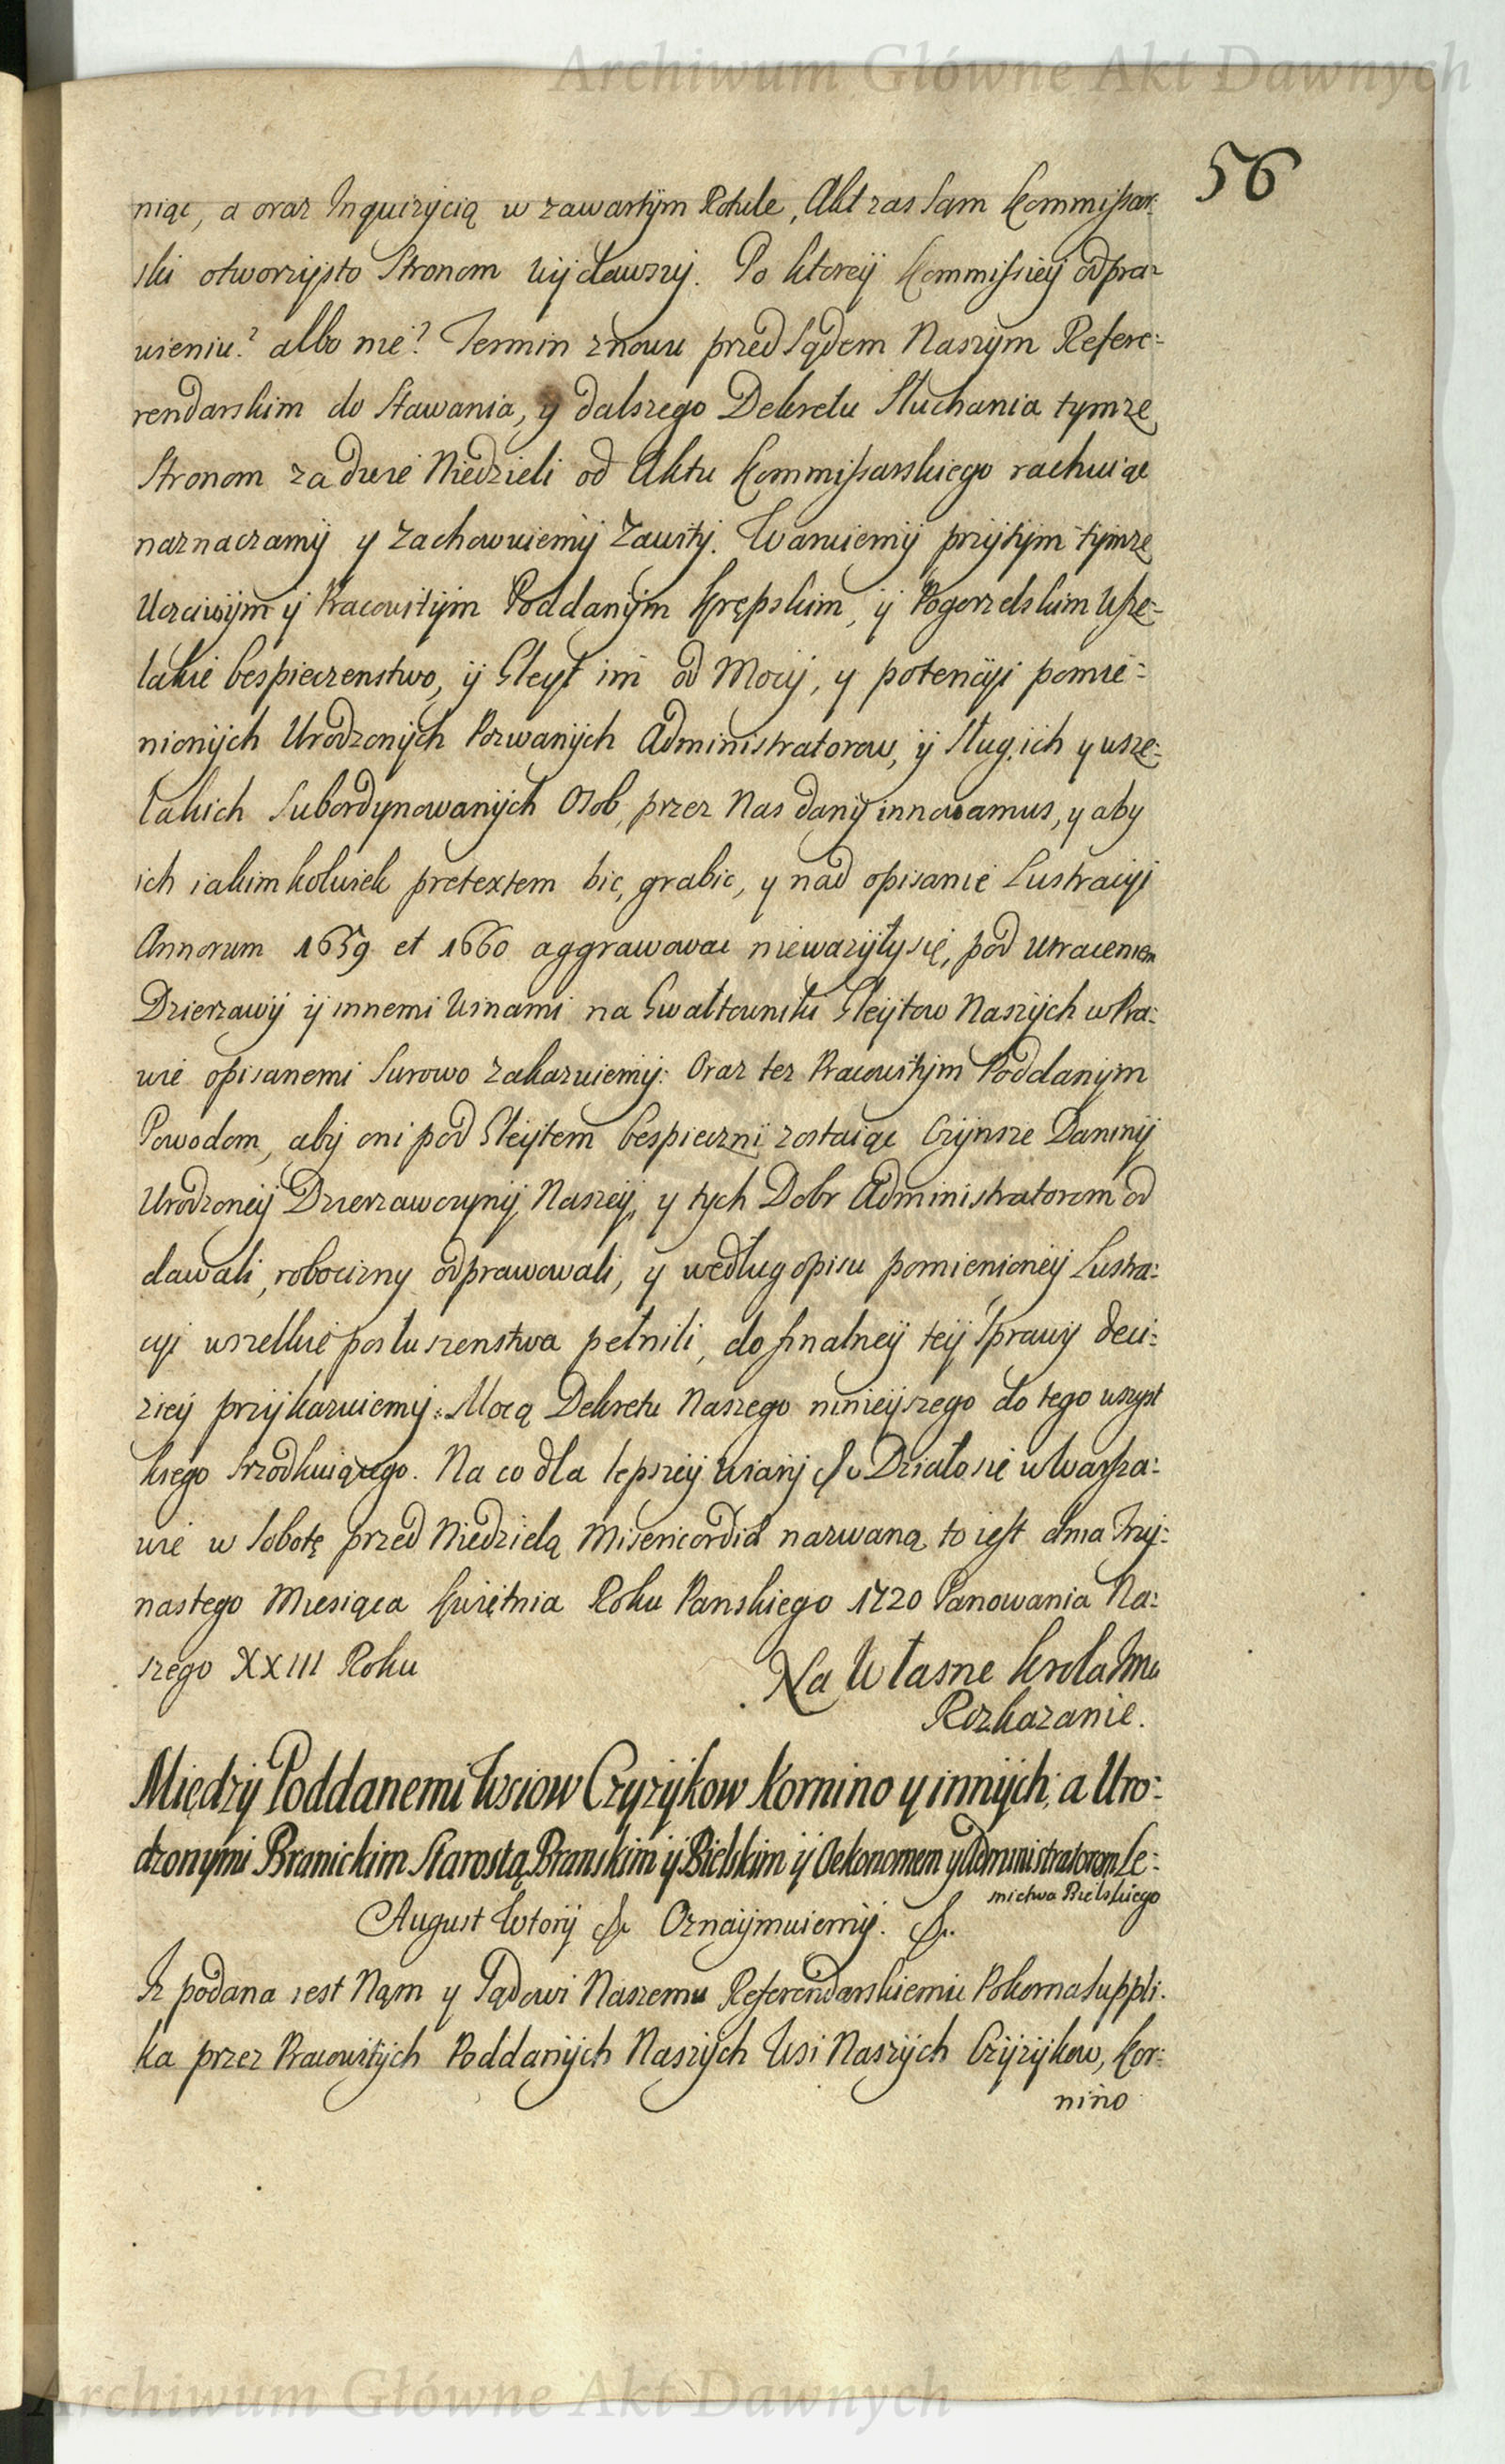 Archiwum Główne Akt Dawnych
56
niąc, a oraz Inquizycią w zawartym Rotule, Akt zas sąm Kommissar:
ski otworzysto Stronom wydawszy. Po ktorey Kommissiey odpra-
wieniu? albo nie? Termin znowu przed Sądem Naszym Refere:
rendarskim do Stawania, y dalszego Dekretu Słuchania tymze
Stronom za dwie Niedzieli od Aktu Kommissarskiego rachuiąc
naznaczamy y zachowuiemy Zawity. Waruiemy przytym tymze
Uczciwym y Pracowitym Poddanym Krępskim, y Pogorzelskim Wsze-
lakie bespieczenstwo, y Gleyt im od Mocy, y potencyi pomie-
nionych Urodzonych Pozwanych Administratorow, y Sług ich y wsze-
lakich Subordynowanych Osob, przez Nas dany innowamus, y aby
ich iakimkolwiek pretextem bic, grabic, y nad opisanie Lustracyi
Annorum 1659 et 1660 aggrawowac niewazyły się, pod utraceniem
Dzierzawy y innemi Winami na Gwałtowniki Gleytow Naszych w Pra:
wie opisanemi Surowo zakazuiemy: Oraz tez Pracowitym Poddanym
Powodom, aby oni pod Gleytem bespieczni zostaiąc Czynsze Daniny
Urodzoney Dzierzawczyny Naszey, y tych Dobr Administratorom od
dawali, robocizny odprawowali, y według opisu pomienioney Lustra:
cyi wszelkie posłuszenstwa pełnili, do finalney tey Sprawy deci:
ziey przykazuiemy: Mocą Dekretu Naszego ninieyszego do tego wszyst
kiego srzodkuiącego. Na co dla lepszey Wiary &c Działo się w Warsza:
wie w Sobotę przed Niedzielą Misericordia nazwaną to iest dnia Trzy:
nastego Miesiąca Kwietnia Roku Panskiego 1720 Panowania Na:
szego XXIII Roku
Na Własne Krola Jmci
Rozkazanie.
Między Poddanemi Wsiow Czyzykow Kornino y innych; a Uro:
dzonymi Branickim Starostą Branskim y Bielskim y Oekonomem y Administratorom Le:
snictwa Bielskiego
August Wtory &c Oznaymuiemy. &c.
Iz podana iest Nąm y Sądowi Naszemu Referendarskiemu Pokorna Suppli-
ka przez Pracowitych Poddanych Naszych Wsi Naszych Czyzykow, Kor:
nino
Archiwum Główne Akt Dawnych